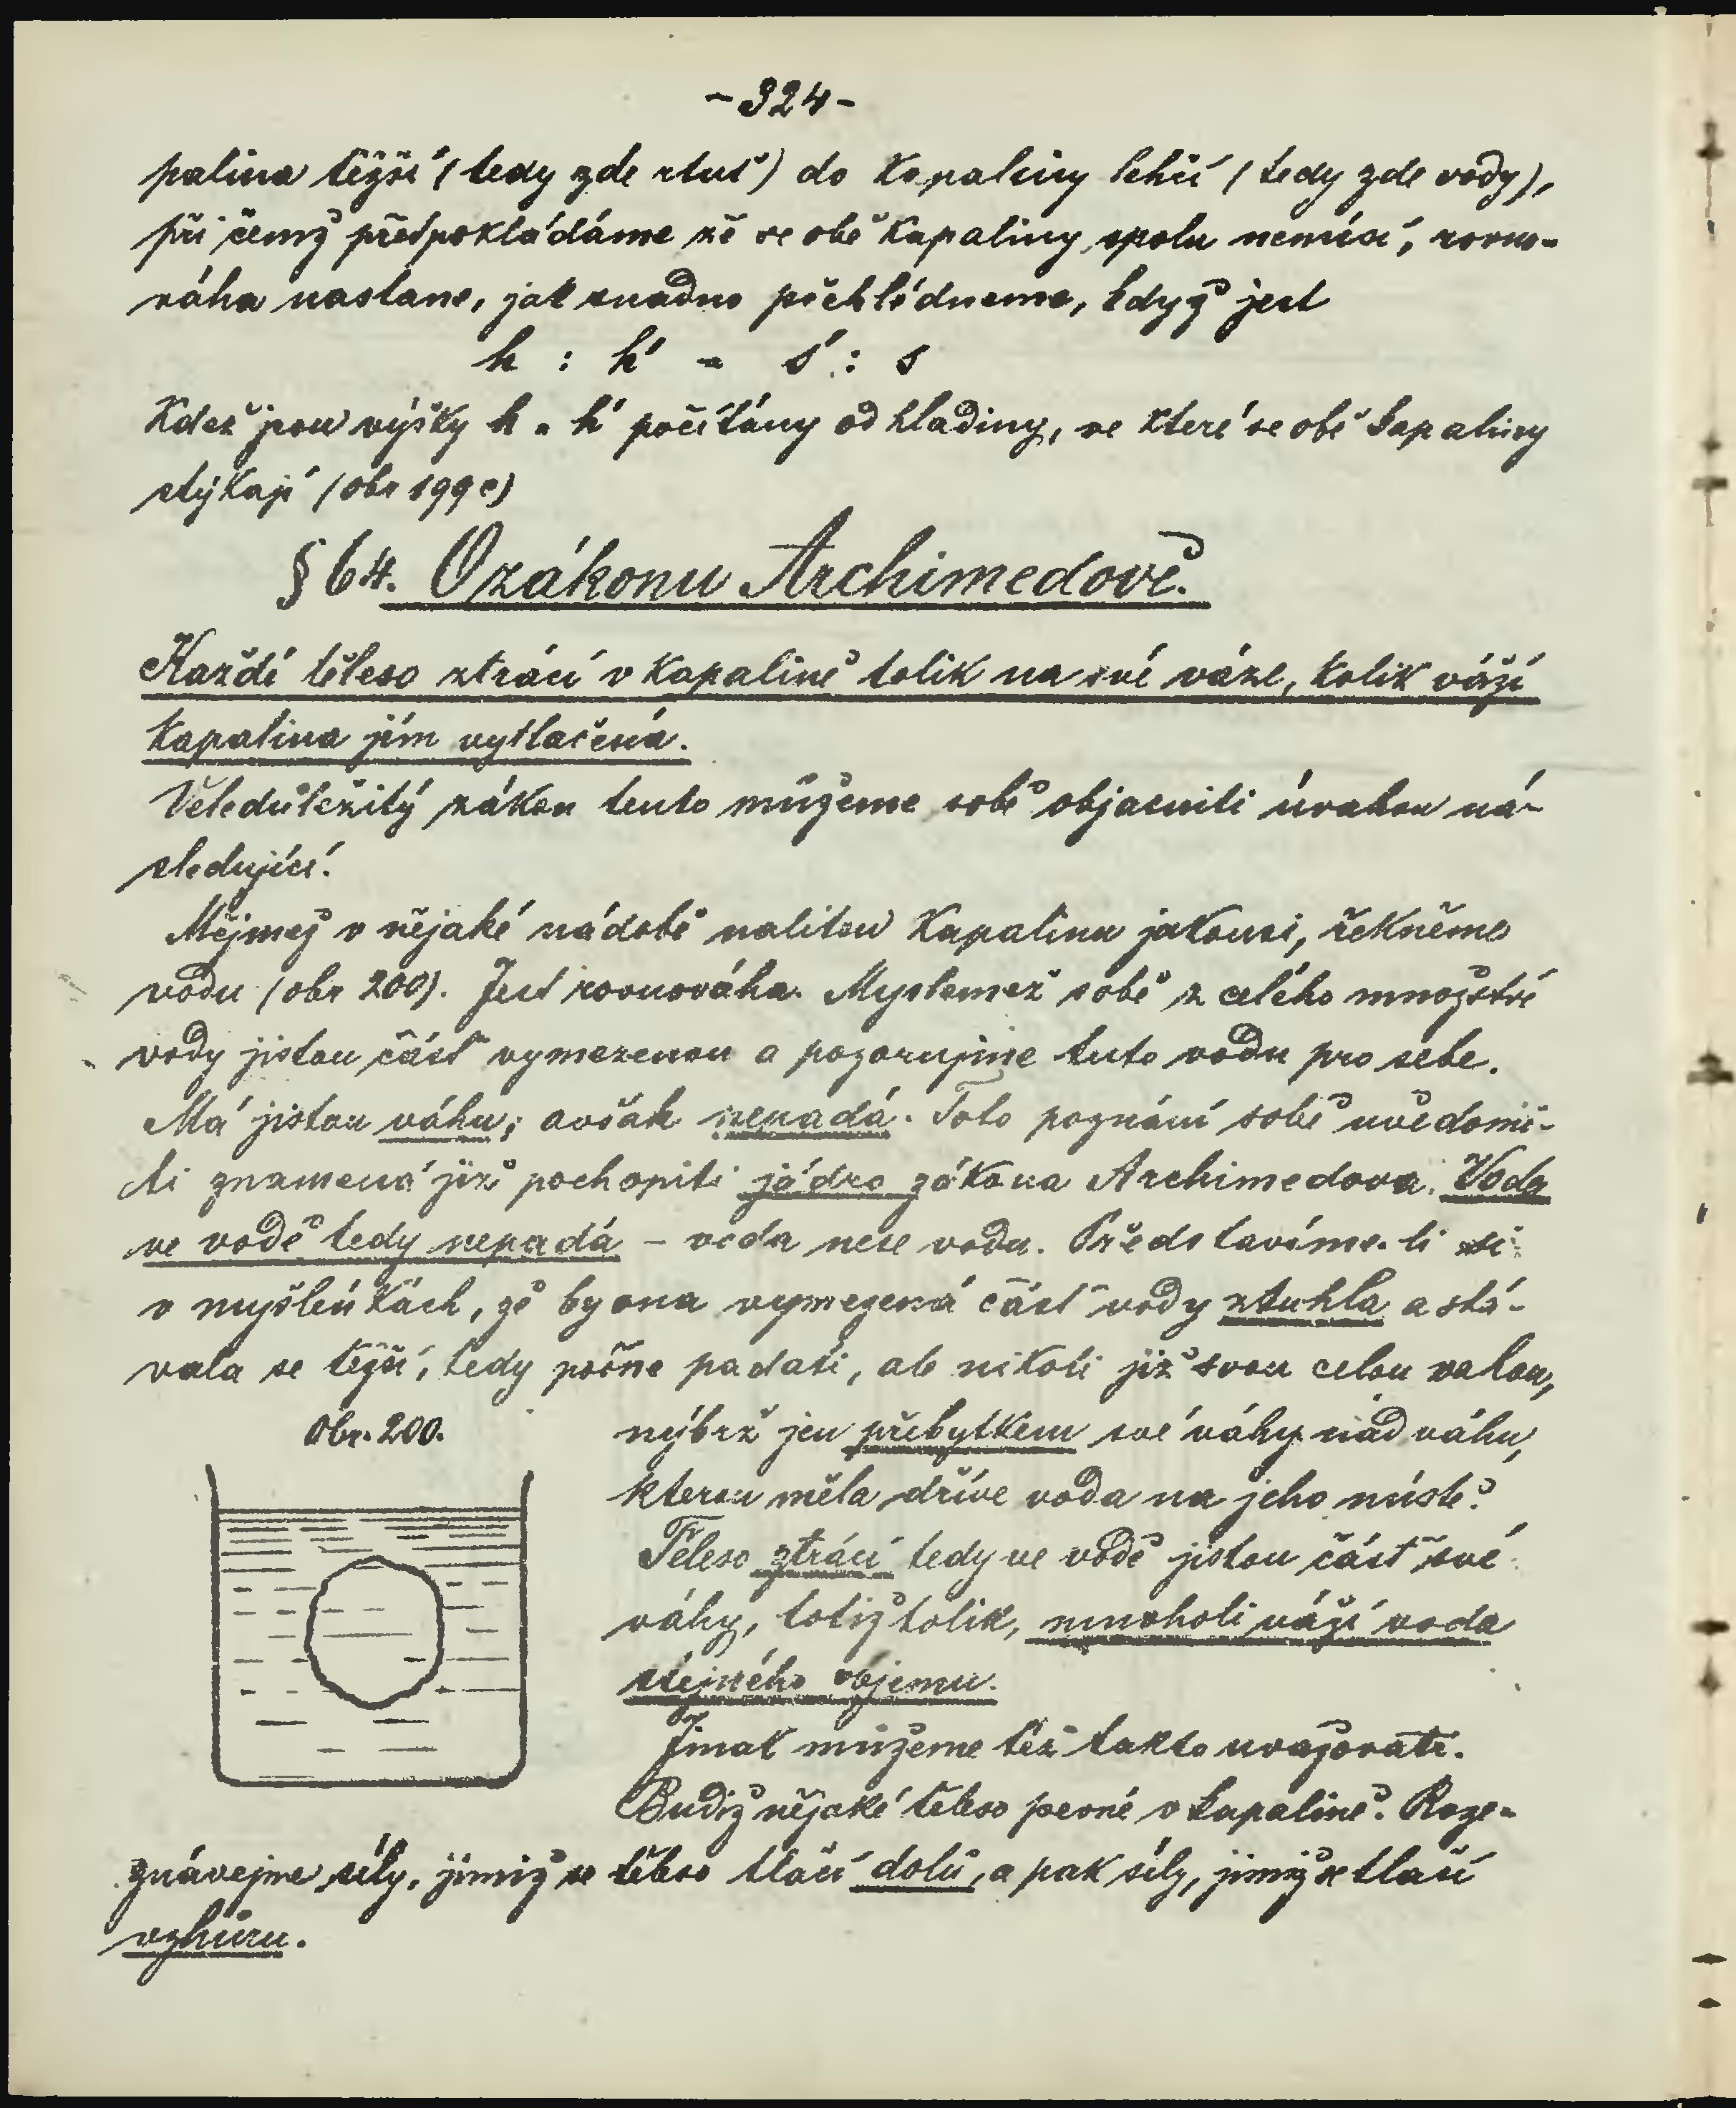 -324-
palina těžší (tedy zde rtuť) do kapaliny lehčí (tedy zde vody),
při čemž předpokládáme že se obě kapaliny spolu nemísí, rovno-
váha nastane, jak snadno přehlédneme, když jest
h : h' = s' : s
Kdež jsou výšky h a h' počítány od hladiny, ve které se obě kapaliny
stýkají (obr 199 c)
§ 64. O zákonu Archimedově.
Každé těleso ztrácí v kapalině tolik na své váze, kolik váží
kapalina jím vytlačená.
Veledůležitý zákon tento můžeme sobě objasniti úvahou ná-
sledující.
Mějmež v nějaké nádobě nalitou kapalinu jakousi, řekněme
vodu (obr 200). Jest rovnováha. Myslemež sobě z celého množství
vody jistou část vymezenou a pozorujme tuto vodu pro sebe.
Má jistou váhu; avšak nepadá. Toto poznání sobě uvědomi-
ti znamená již pochopiti jádro zákona Archimedova. Voda
ve vodě tedy nepadá - voda nese vodu. Představíme-li si
v myšlenkách, že by ona vymezená část vody ztuhla a stá-
vala se těžší, tedy počne padati, ale nikoli již svou celou vahou,
Obr. 200.
nýbrž jen přebytkem své váhy nad váhu,
kterou měla dříve voda na jeho místě.
Těleso ztrácí tedy ve vodě jistou část své
váhy, totiž tolik, mnoholi váží voda
stejného objemu.
Jinak můžeme též takto uvažovati.
Budiž nějaké těleso pevné v kapalině. Roze-
znávejme síly, jimiž se těleso tlačí dolů, a pak síly, jimiž se tlačí
vzhůru.